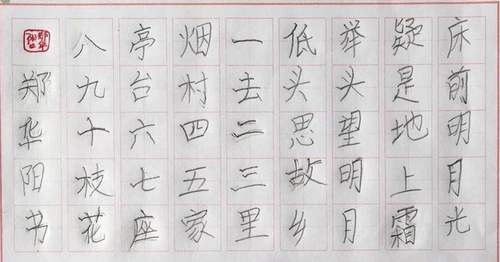 床前明月光
疑是地上霜
举头望明月
低头思故乡
一去二三里
烟村四五家
亭台六七座
八九十枝花
郑华阳书